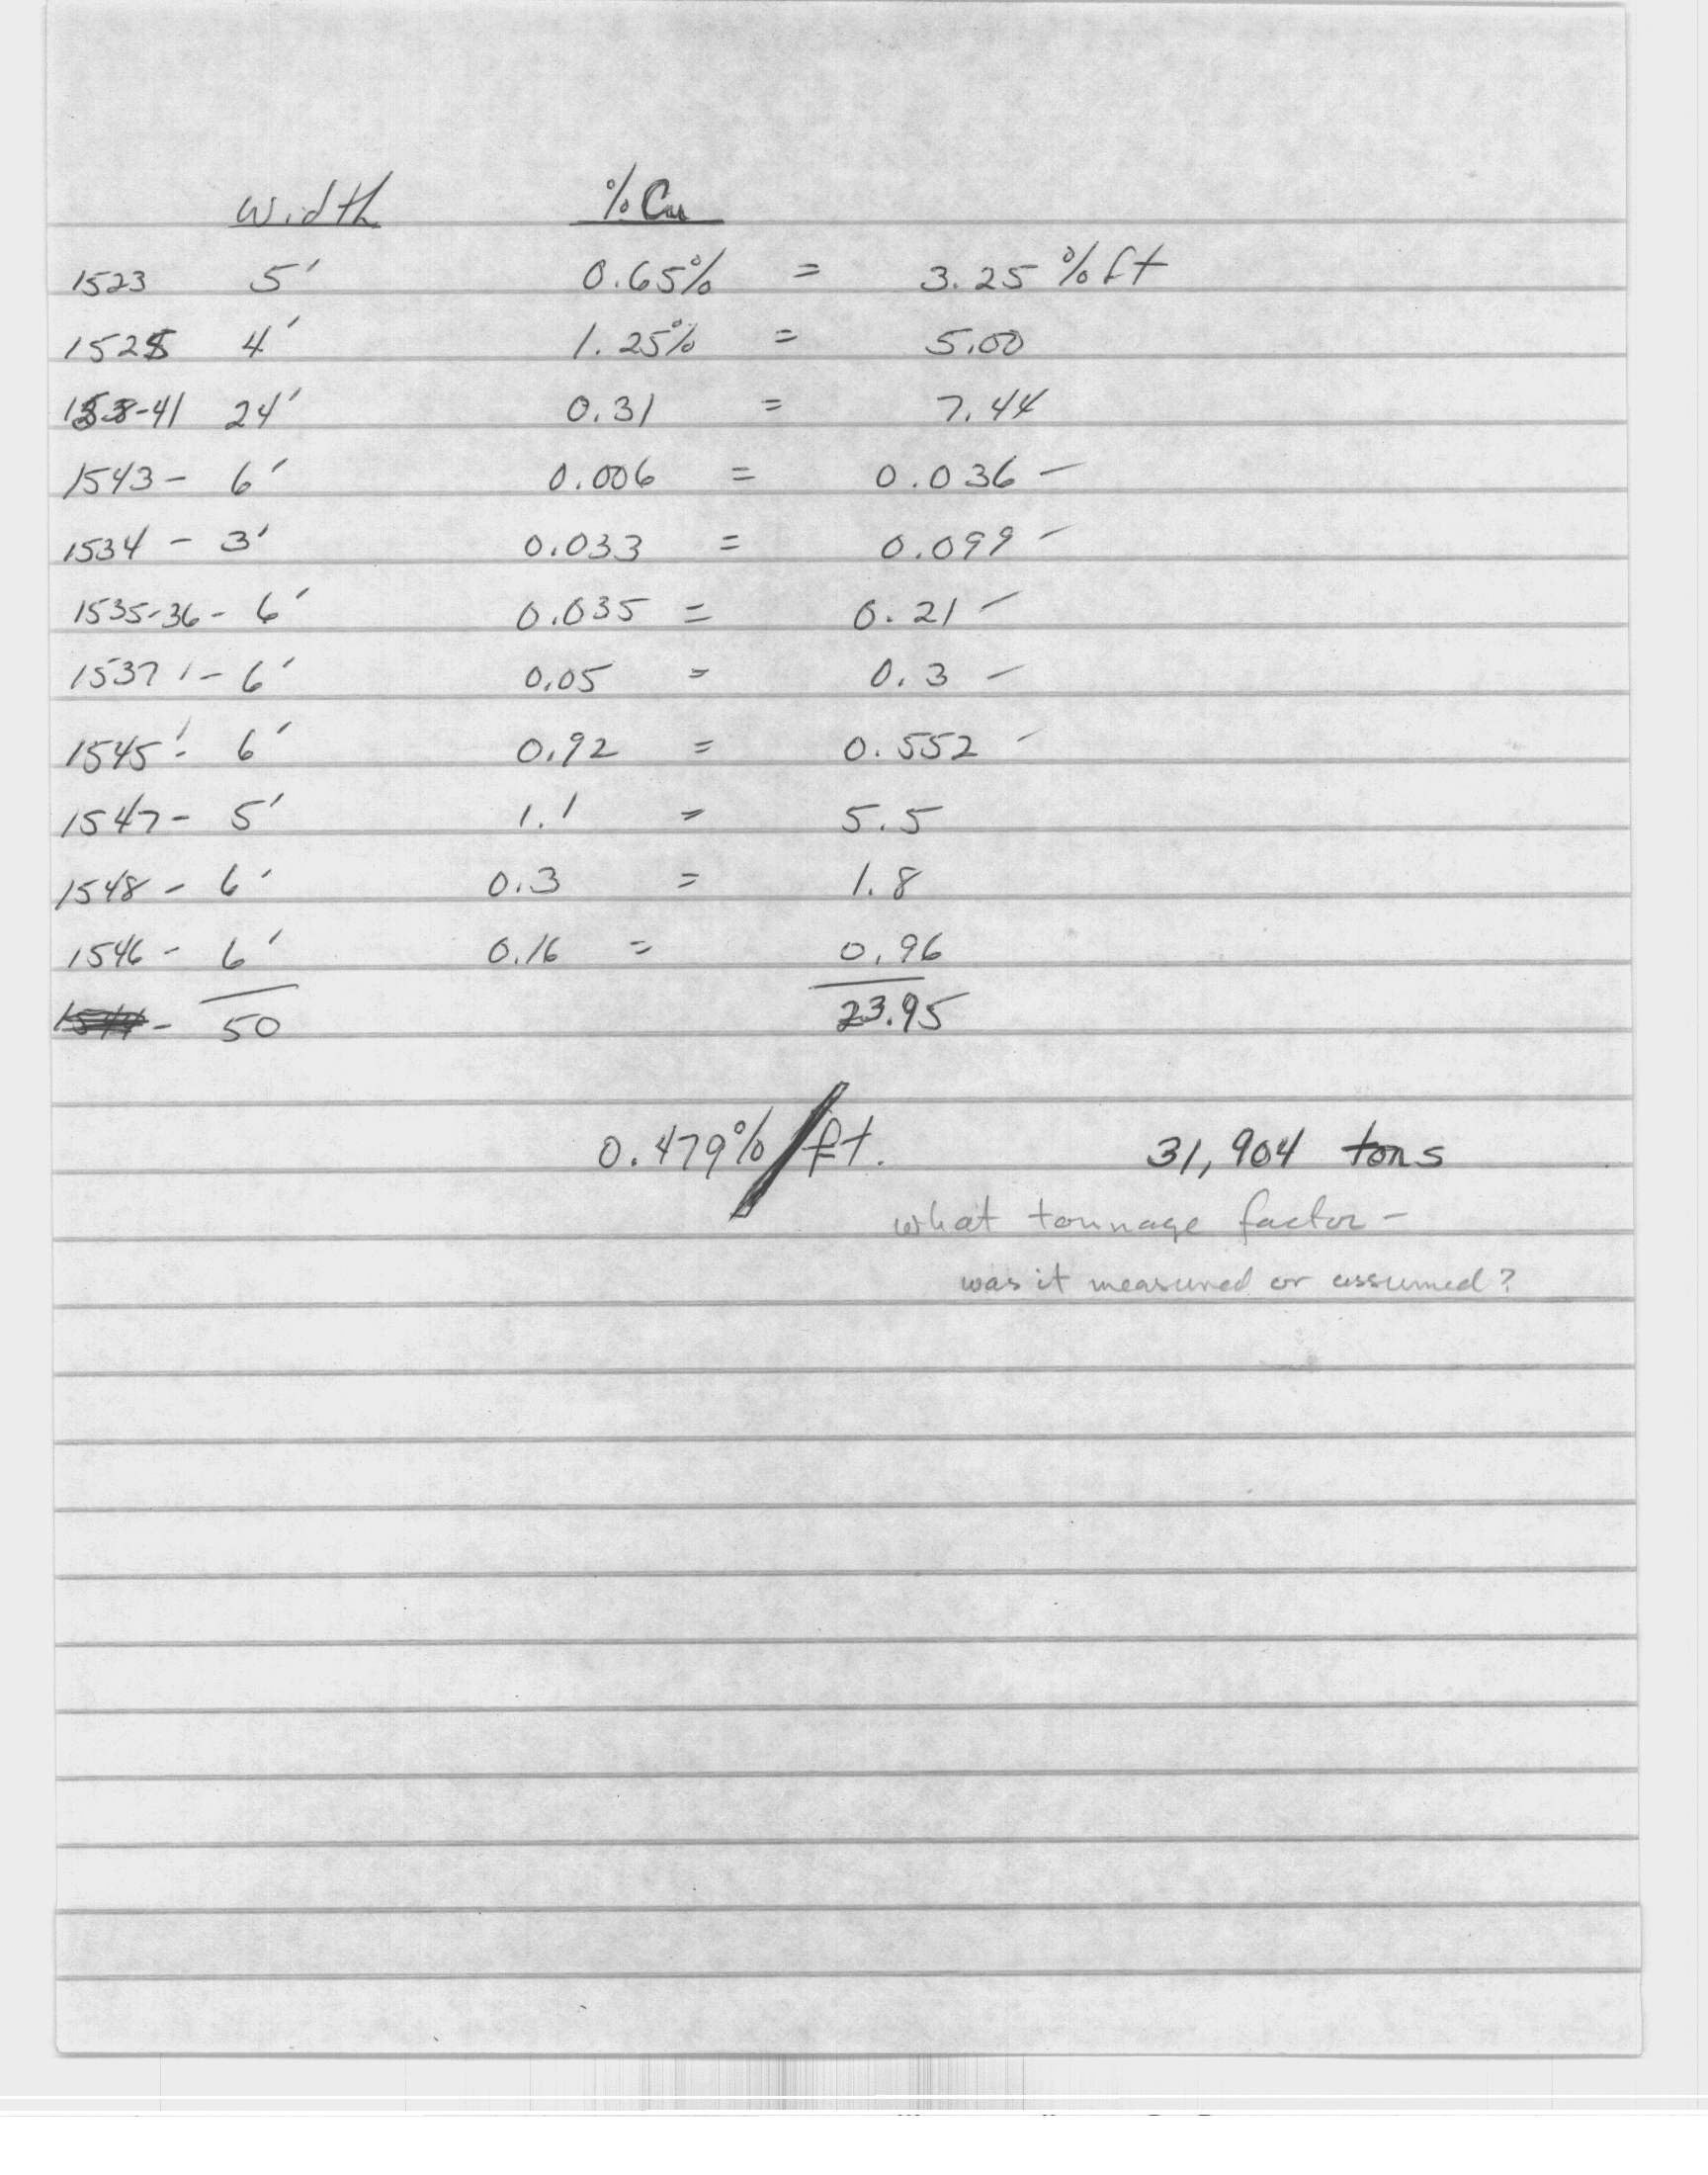 Width %Cu
1523 5' 0.65% = 3.25 % ft
1525 4' 1.25% = 5.00
1538-41 24' 0.31 = 7.44
1543 - 6' 0.006 = 0.036 -
1534 - 3' 0.033 = 0.099 -
1535-36 - 6' 0.035 = 0.21 -
1537 - 6' 0.05 = 0.3 -
1545 - 6' 0.92 = 0.552 -
1547 - 5' 1.1 = 5.5
1548 - 6' 0.3 = 1.8
1546 - 6' 0.16 = 0.96
- 50 23.95
0.479% / ft. 31,904 tons
what tonnage factor -
was it measured or assumed?